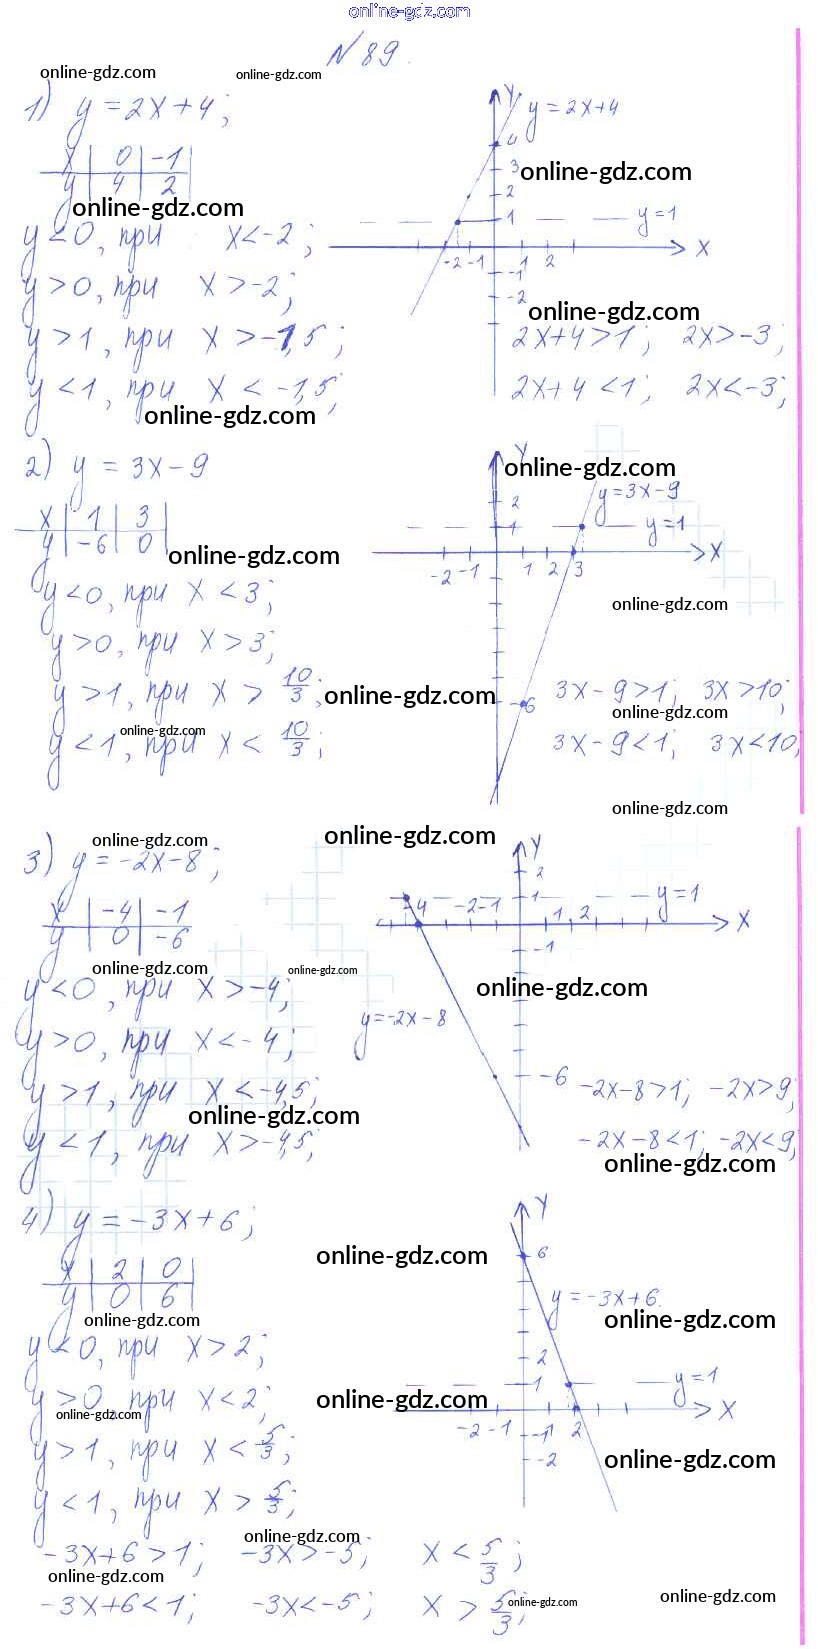 online-gdz.com
N89.
online-gdz.com online-gdz.com
1) y = 2x+4;
y = 2x+4
x | 0 | -1
y | 4 | 2
online-gdz.com
online-gdz.com
Y
4
3
2
1
y=1
-2 -1 1 2 X
-1
-2
y<0, при x<-2;
y>0, при x>-2;
online-gdz.com
y>1, при x>-1,5; 2x+4>1; 2x>-3;
y<1, при x<-1,5; 2x+4<1; 2x<-3;
online-gdz.com
2) y = 3x-9
online-gdz.com
Y
y=3x-9
x | 1 | 3
y | -6 | 0
2
1
y=1
online-gdz.com
-2 -1 1 2 3 X
y<0, при x<3;
online-gdz.com
y>0, при x>3;
y>1, при x> 10/3; 3x-9>1; 3x>10;
online-gdz.com
-6
online-gdz.com
online-gdz.com
y<1, при x< 10/3; 3x-9<1; 3x<10;
online-gdz.com
online-gdz.com
online-gdz.com
3) y = -2x-8;
Y
2
1
y=1
x | -4 | -1
y | 0 | -6
-4 -2 -1 1 2 X
-1
online-gdz.com online-gdz.com
online-gdz.com
y<0, при x>-4;
y=-2x-8
y>0, при x<-4;
-6
y>1, при x<-4,5; -2x-8>1; -2x>9;
online-gdz.com
y<1, при x>-4,5; -2x-8<1; -2x<9;
online-gdz.com
4) y = -3x+6;
Y
6
online-gdz.com
x | 2 | 0
y | 0 | 6
y = -3x+6.
online-gdz.com
online-gdz.com
y<0, при x>2;
2
1
y=1
y>0, при x<2;
online-gdz.com
online-gdz.com
-2 -1 2 X
-1
-2
y>1, при x< 5/3;
online-gdz.com
y<1, при x> 5/3;
online-gdz.com
-3x+6>1; -3x>-5; x< 5/3;
online-gdz.com
-3x+6<1; -3x<-5; x> 5/3;
online-gdz.com
online-gdz.com